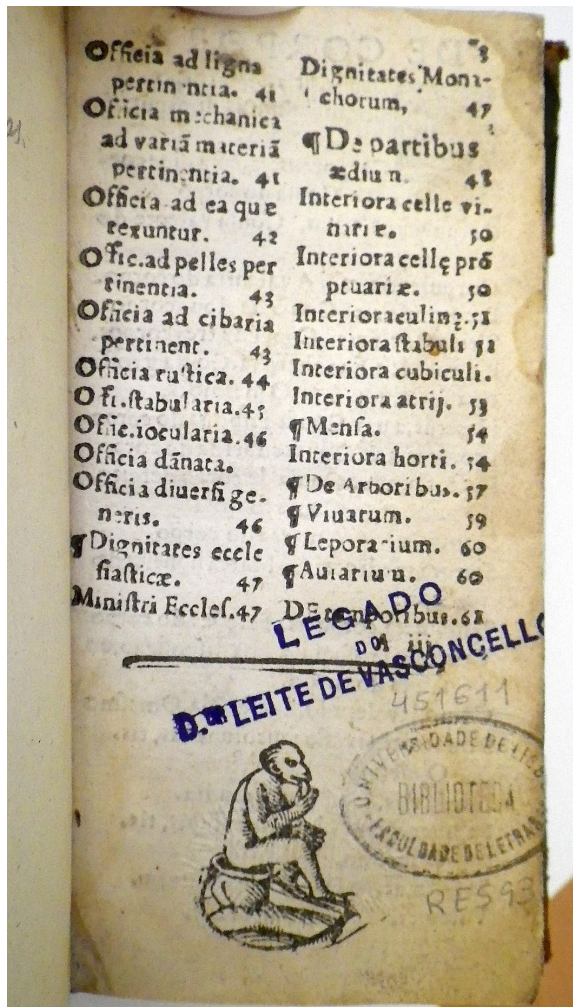 Officia ad ligna
pertinentia. 41
Officia mechanica
ad variā materiā
pertinentia. 41
Officia ad ea quæ
texuntur. 42
Offic.ad pelles per
tinentia. 43
Officia ad cibaria
pertinent. 43
Officia rustica. 44
Offi.stabularia.45
Offic.iocularia.46
Officia dānata.
Officia diuersi ge-
neris. 46
¶Dignitates eccle
siasticæ. 47
Ministri Eccles.47
Dignitates Mona-
chorum, 47
¶De partibus
ædium. 48
Interiora celle vi-
nariæ. 50
Interiora cellę prō
ptuariæ. 50
Interiora culinę.51
Interiora stabuli 52
Interiora cubiculi.
Interiora atrij. 53
¶Mensa. 54
Interiora horti. 54
¶De Arboribus. 57
¶Viuarum. 59
¶Leporarium. 60
¶Auiarium. 60
De temporibus.61
iij
LEGADO
DO
D.or LEITE DE VASCONCELLO
451611
UNIVERSIDADE DE LISB
BIBLIOTECA
FACULDADE DE LETRAS
RES93